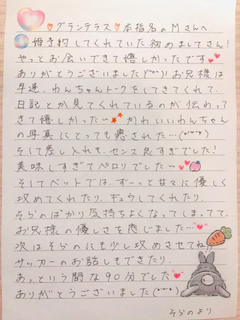 グランテラス 本指名のMさんへ
姫予約してくれていた初めましてさん!
やっとお会いできて嬉しかったです
ありがとうございました(*^^*) お兄様は
早速、わんちゃんトークをしてきてくれて、
日記とか見てくれているのが伝わって
きて嬉しかったー かわいいわんちゃん
の写真にとっても癒された…(*^^*)
そして差し入れも、センス良すぎでした!
美味しすぎてペロリでしたー
そしてベットでは、ずーっと甘々に優しく
攻めてくれたり、ギュウしてくれたり、
そらのばかり気持ちよくなってしまってて、
お兄様の優しさを感じました…
次はそらのにも少し攻めさせてね
サッカーのお話しもできたり、
あっという間な90分でした
ありがとうございました(*^^*)
そらのより